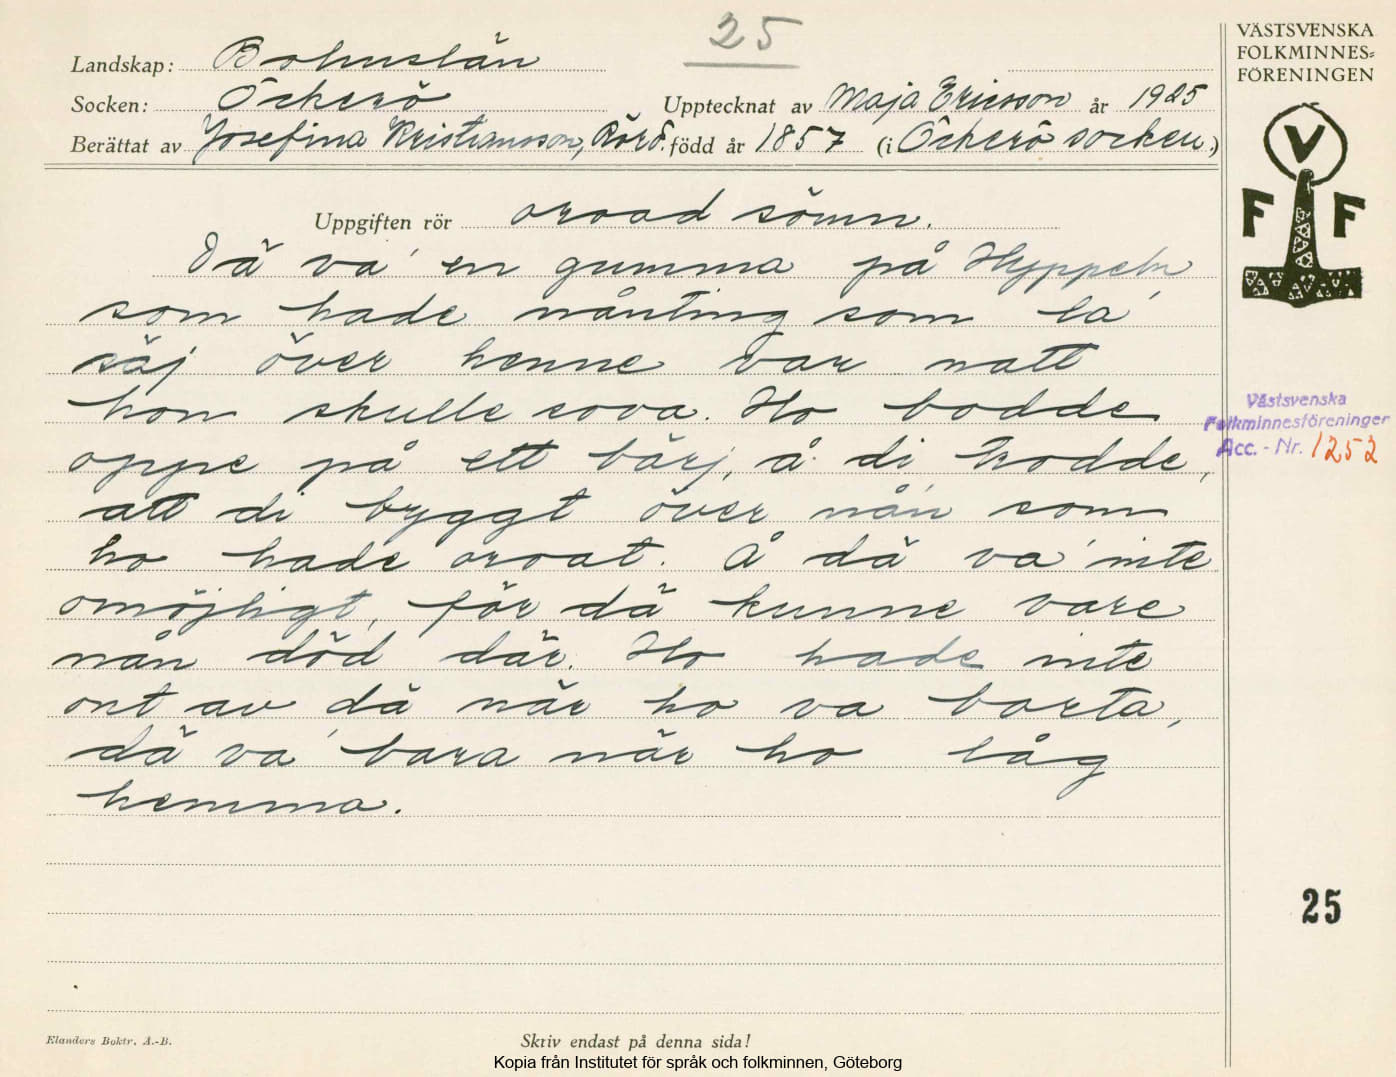 25
VÄSTSVENSKA
FOLKMINNES=
FÖRENINGEN
Landskap: Bohuslän
Socken: Öckerö Upptecknat av Maja Ericsson år 1925
Berättat av Josefina Kristiansson, Rörö. född år 1857 (i Öckerö socken.)
V
F F
Uppgiften rör oroad sömn.
Dä va' en gumma på Hyppeln,
som hade nånting som la'
säj över henne var natt
hon skulle sova. Ho bodde
oppe på ett bärj, å di trodde,
att di byggt över nån som
ho hade oroat. Å dä va' inte
omöjligt, för dä kunne vare
nån död där. Ho hade inte
ont av dä när ho va borta,
dä va' bara när ho låg
hemma.
Västsvenska
Folkminnesföreningen
Acc. - Nr. 1252
25
Elanders Boktr. A.-B.
Skriv endast på denna sida!
Kopia från Institutet för språk och folkminnen, Göteborg